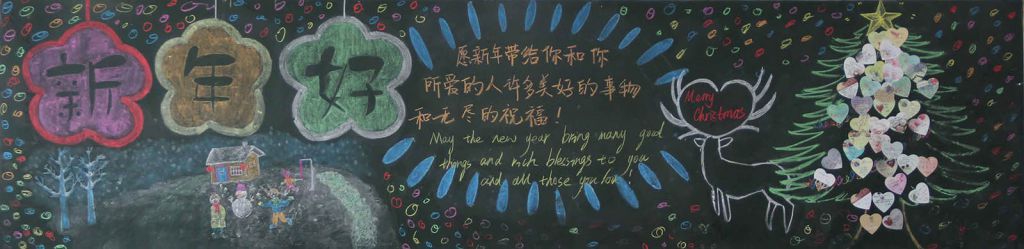 新年好
愿新年带给你和你
所爱的人许多美好的事物
和无尽的祝福！
May the new year bring many good
things and rich blessings to you
and all those you love!
Merry
Christmas